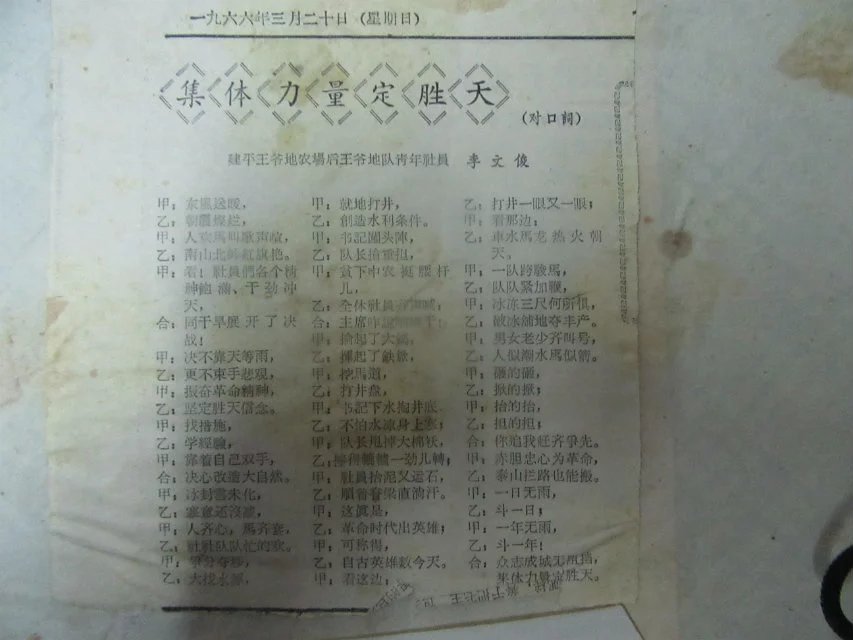 一九六六年三月二十日（星期日）
集体力量定胜天
（对口詞）
建平王爷地农場后王爷地队青年社員 李文俊
甲：东風送暖，
乙：朝霞燦烂，
甲：人欢馬叫歌声喧，
乙：南山北 紅旗艳。
甲：看！社員們各个精
神飽满、干劲冲
天，
合：同干旱展开了决
战！
甲：决不靠天等雨，
乙：更不束手悲观，
甲：振奋革命精神，
乙：坚定胜天信念。
甲：找措施，
乙：学經驗，
甲：靠着自己双手，
合：决心改造大自然。
甲：冰封雪未化，
乙：寒意还沒濾，
甲：人齐心，馬齐套，
乙：社社队队忙的欢。
甲：爭分夺秒，
乙：大找水源，
甲：就地打井，
乙：創造水利条件。
甲：书記闖头陣，
乙：队长搶重担，
甲：貧下中农挺腰杆
儿，
乙：全体社員
合：主席
甲：掄起了大鎬，
乙：揮起了鉄鍬，
甲：挖馬道，
乙：打井盘，
甲：书記下水掏井底，
乙：不怕水凉身上寒；
甲：队长甩掉大棉袄，
乙： 轆轆一劲儿轉；
甲：社員抬泥又运石，
乙：順着脊梁直淌汗。
甲：这真是，
乙：革命时代出英雄；
甲：可称得，
乙：自古英雄数今天。
甲：看这边：
乙：打井一眼又一眼；
甲：看那边：
乙：車水馬龙热火朝
天。
甲：一队跨駿馬，
乙：队队紧加鞭，
甲：冰冻三尺何所惧，
乙：破冰舖地夺丰产。
甲：男女老少齐叫号，
乙：人似潮水馬似箭。
甲：砸的砸，
乙：掀的掀；
甲：抬的抬，
乙：担的担；
合：你追我赶齐爭先。
甲：赤胆忠心为革命，
乙：泰山拦路也能搬。
甲：一日无雨，
乙：斗一日；
甲：一年无雨，
乙：斗一年！
合：众志成城无阻挡，
集体力量定胜天。